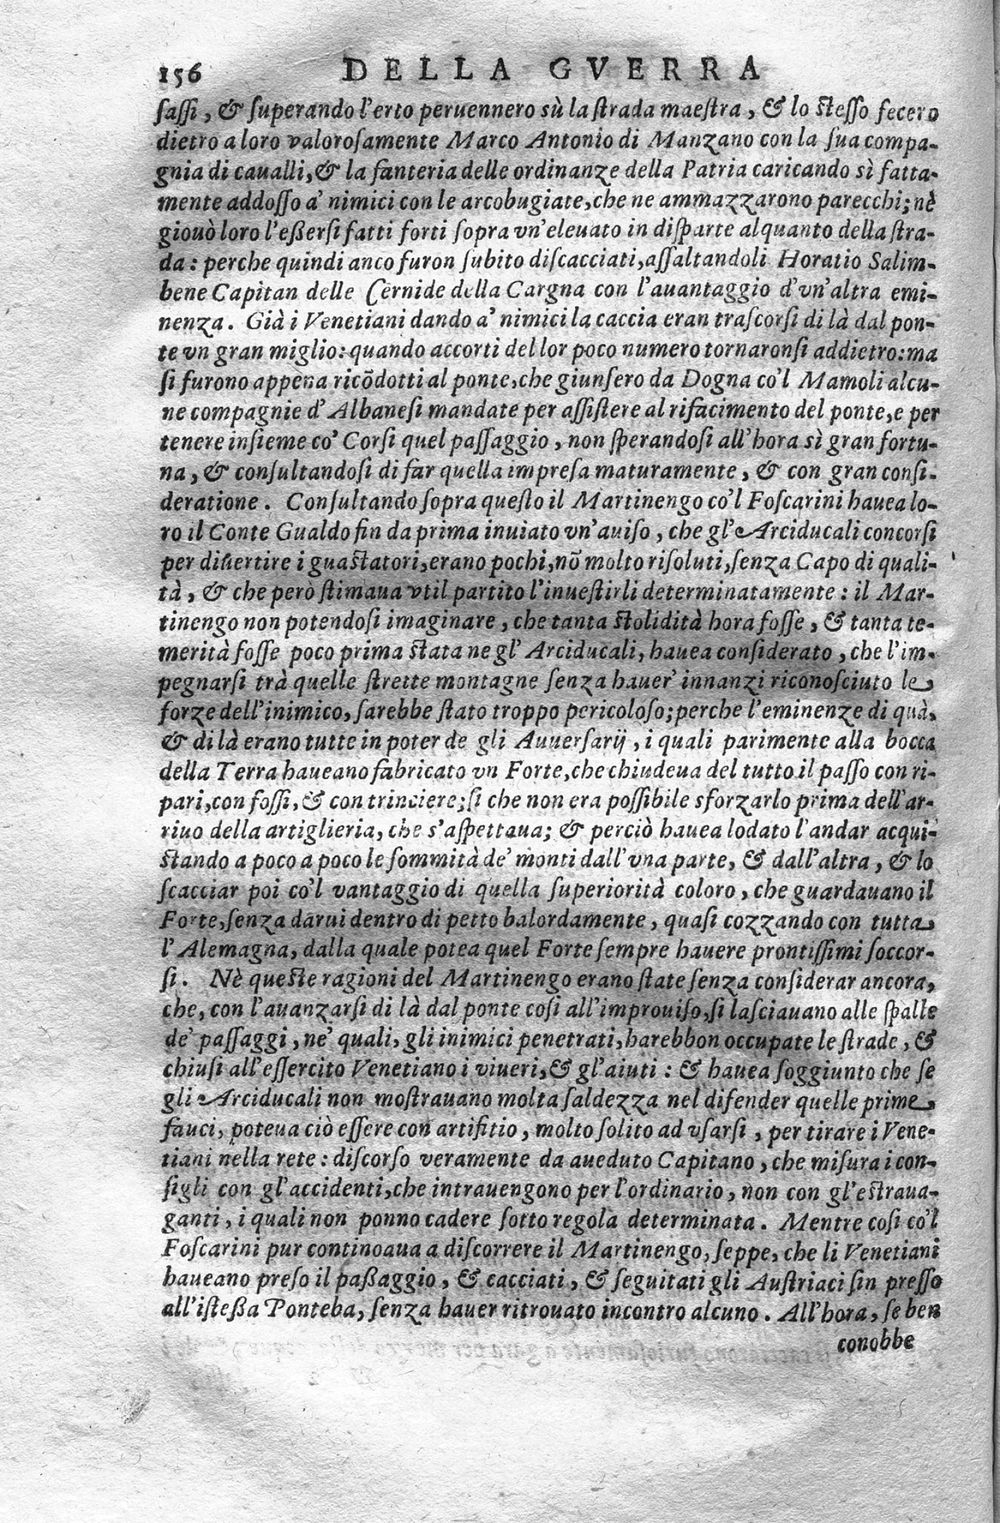 156 DELLA GVERRA
ſaſſi, & ſuperando l'erto peruennero sù la ſtrada maeſtra, & lo ſteſſo fecero
dietro a loro valoroſamente Marco Antonio di Manzano con la ſua compa-
gnia di caualli, & la fanteria delle ordinanze della Patria caricando sì fatta-
mente addoſſo a' nimici con le arcobugiate, che ne ammazzarono parecchi; nè
giouò loro l'eßerſi fatti forti ſopra vn'eleuato in diſparte alquanto della ſtra-
da: perche quindi anco furon ſubito diſcacciati, aſſaltandoli Horatio Salim-
bene Capitan delle Cernide della Cargna con l'auantaggio d'vn'altra emi-
nenza. Già i Venetiani dando a' nimici la caccia eran traſcorſi di là dal pon-
te vn gran miglio: quando accorti del lor poco numero tornaronſi addietro: ma
ſi furono appena ricõdotti al ponte, che giunſero da Dogna co'l Mamoli alcu-
ne compagnie d'Albaneſi mandate per aſſiſtere al rifacimento del ponte, e per
tenere inſieme co' Corſi quel paſſaggio, non ſperandoſi all'hora sì gran fortu-
na, & conſultandoſi di far quella impreſa maturamente, & con gran conſi-
deratione. Conſultando ſopra queſto il Martinengo co'l Foſcarini hauea lo-
ro il Conte Gualdo fin da prima inuiato vn'auiſo, che gl'Arciducali concorſi
per diuertire i guaſtatori, erano pochi, nõ molto riſoluti, ſenza Capo di quali-
tà, & che però ſtimaua vtil partito l'inueſtirli determinatamente: il Mar-
tinengo non potendoſi imaginare, che tanta ſtolidità hora foſſe, & tanta te-
merità foſſe poco prima ſtata ne gl'Arciducali, hauea conſiderato, che l'im-
pegnarſi trà quelle ſtrette montagne ſenza hauer' innanzi riconoſciuto le
forze dell'inimico, ſarebbe ſtato troppo pericoloſo; perche l'eminenze di quà,
& di là erano tutte in poter de gli Auuerſarij, i quali parimente alla bocca
della Terra haueano fabricato vn Forte, che chiudeua del tutto il paſſo con ri-
pari, con foſſi, & con trinciere; ſi che non era poſſibile sforzarlo prima dell'ar-
riuo della artiglieria, che s'aſpettaua; & perciò hauea lodato l'andar acqui-
ſtando a poco a poco le ſommità de' monti dall'vna parte, & dall'altra, & lo
ſcacciar poi co'l vantaggio di quella ſuperiorità coloro, che guardauano il
Forte, ſenza darui dentro di petto balordamente, quaſi cozzando con tutta
l'Alemagna, dalla quale potea quel Forte ſempre hauere prontiſſimi ſoccor-
ſi. Nè queſte ragioni del Martinengo erano ſtate ſenza conſiderar ancora,
che, con l'auanzarſi di là dal ponte coſi all'improuiſo, ſi laſciauano alle ſpalle
de' paſſaggi, ne' quali, gli inimici penetrati, harebbon occupate le ſtrade, &
chiuſi all'eſſercito Venetiano i viueri, & gl'aiuti: & hauea ſoggiunto che ſe
gli Arciducali non moſtrauano molta ſaldezza nel difender quelle prime
fauci, poteua ciò eſſere con artifitio, molto ſolito ad vſarſi, per tirare i Vene-
tiani nella rete: diſcorſo veramente da aueduto Capitano, che miſura i con-
ſigli con gl'accidenti, che intrauengono per l'ordinario, non con gl'eſtraua-
ganti, i quali non ponno cadere ſotto regola determinata. Mentre coſi co'l
Foſcarini pur continoaua a diſcorrere il Martinengo, ſeppe, che li Venetiani
haueano preſo il paßaggio, & cacciati, & ſeguitati gli Auſtriaci ſin preſſo
all'iſteßa Ponteba, ſenza hauer ritrouato incontro alcuno. All'hora, ſe ben
conobbe